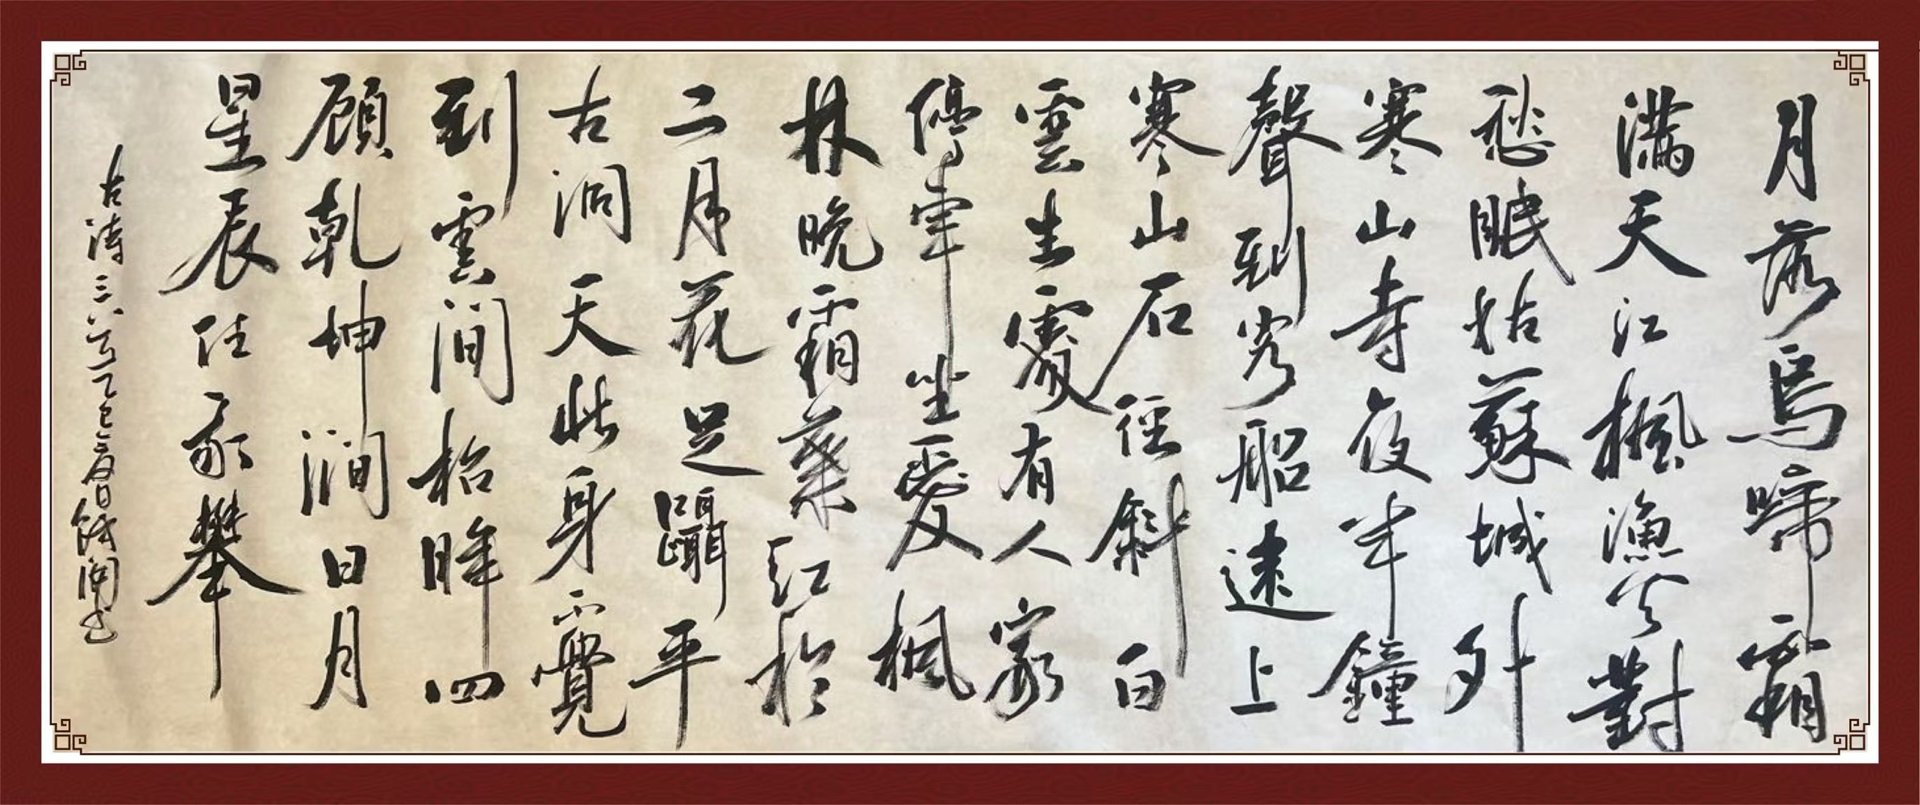 月落烏啼霜
滿天江楓漁火對
愁眠姑蘇城外
寒山寺夜半鐘
聲到客船遠上
寒山石徑斜白
雲生處有人家
停車坐愛楓
林晚霜葉紅於
二月花足躡平
古洞天此身不覺
到雲間抬眸四
顧乾坤闊日月
星辰任我攀
古詩三首乙巳夏日